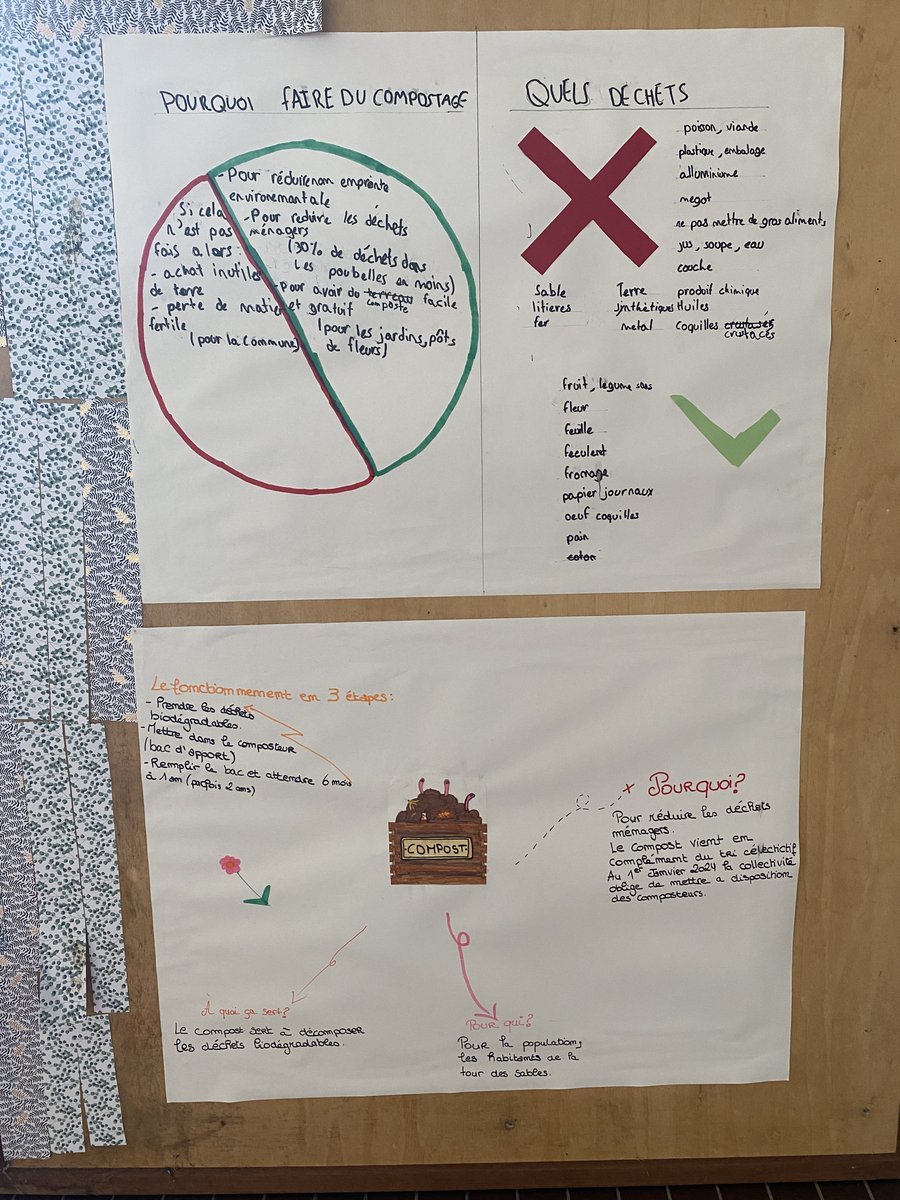 POURQUOI FAIRE DU COMPOSTAGE
- Pour réduire mon empreinte
environementale
- Pour reduire les déchets
ménagers
(30% de déchets dans
les poubelles en moins)
- Pour avoir du terreau facile
composte
et gratuit
(pour les jardins, pôts
de fleurs)
Si cela
n'est pas
fais alors :
- achat inutiles
de terre
- perte de matière
fertile
(pour la commune)
QUELS DECHETS
poison, viande
plastique, embalage
alluminiume
megot
ne pas mettre de gros aliments
jus, soupe, eau
couche
Sable Terre produit chimique
litieres synthétiques Huiles
fer metal coquilles crustasés
crustacés
Fruit, legume
fleur
feuille
feculent
fromage
papier journaux
oeuf coquilles
pain
coton
Le fonctionnement en 3 étapes :
- Prendre les déchets
biodégradables.
- Mettre dans le composteur
(bac d'apport)
- Remplir le bac et attendre 6 mois
à 1 an (parfois 2 ans)
COMPOST
Pourquoi?
Pour réduire les déchets
ménagers.
Le compost vient en
complément du tri célectictif
Au 1er Janvier 2024 la collectivité
oblige de mettre a disposition
des composteurs.
À quoi ça sert?
Le compost sert à décomposer
les déchets biodégradables.
Pour qui?
Pour la population,
les habitants de la
tour des sables.